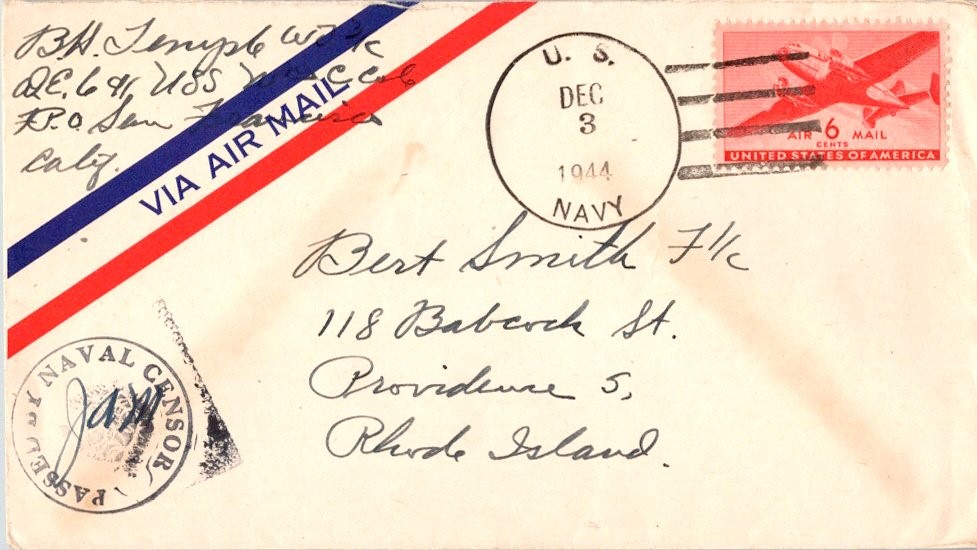 B.H. Temple WT 3/c
DE. 691, USS
F.P.O. San Francisco
Calif.
VIA AIR MAIL
U. S.
DEC
3
1944
NAVY
AIR 6 MAIL
CENTS
UNITED STATES OF AMERICA
Bert Smith F 1/c
118 Babcock St.
Providence 5,
Rhode Island.
PASSED BY NAVAL CENSOR
JAM